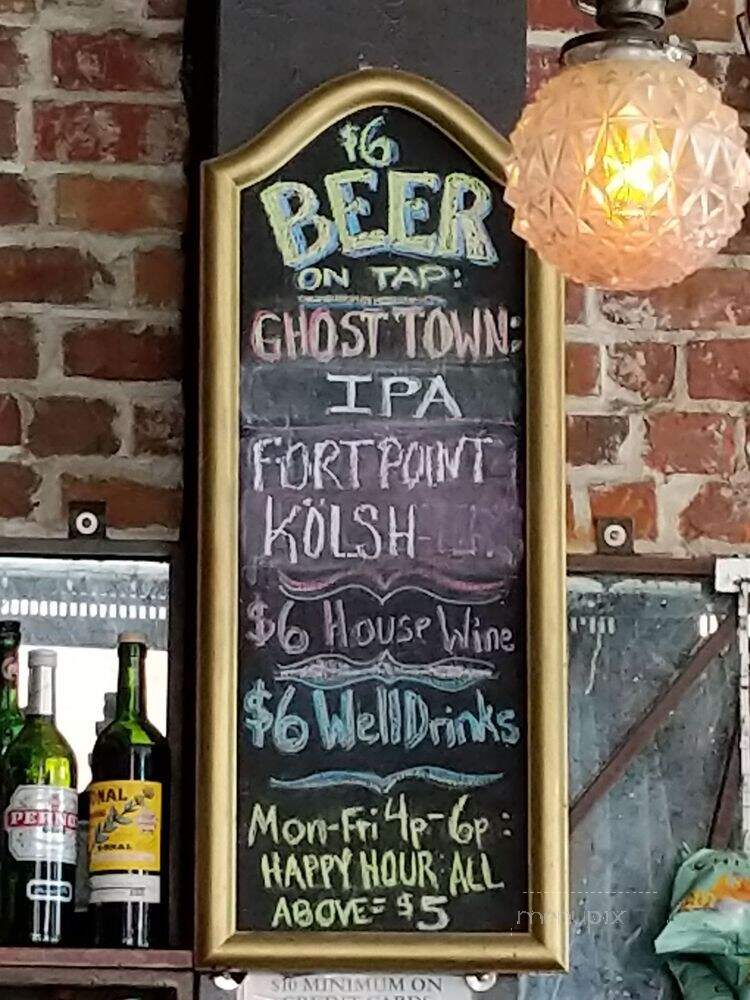 $6
BEER
ON TAP:
GHOST TOWN:
IPA
FORT POINT
KÖLSH
$6 House Wine
$6 Well Drinks
Mon-Fri 4p-6p:
HAPPY HOUR ALL
ABOVE = $5
PERNO
ONAL
menupix
$10 MINIMUM ON
CREDIT CARDS